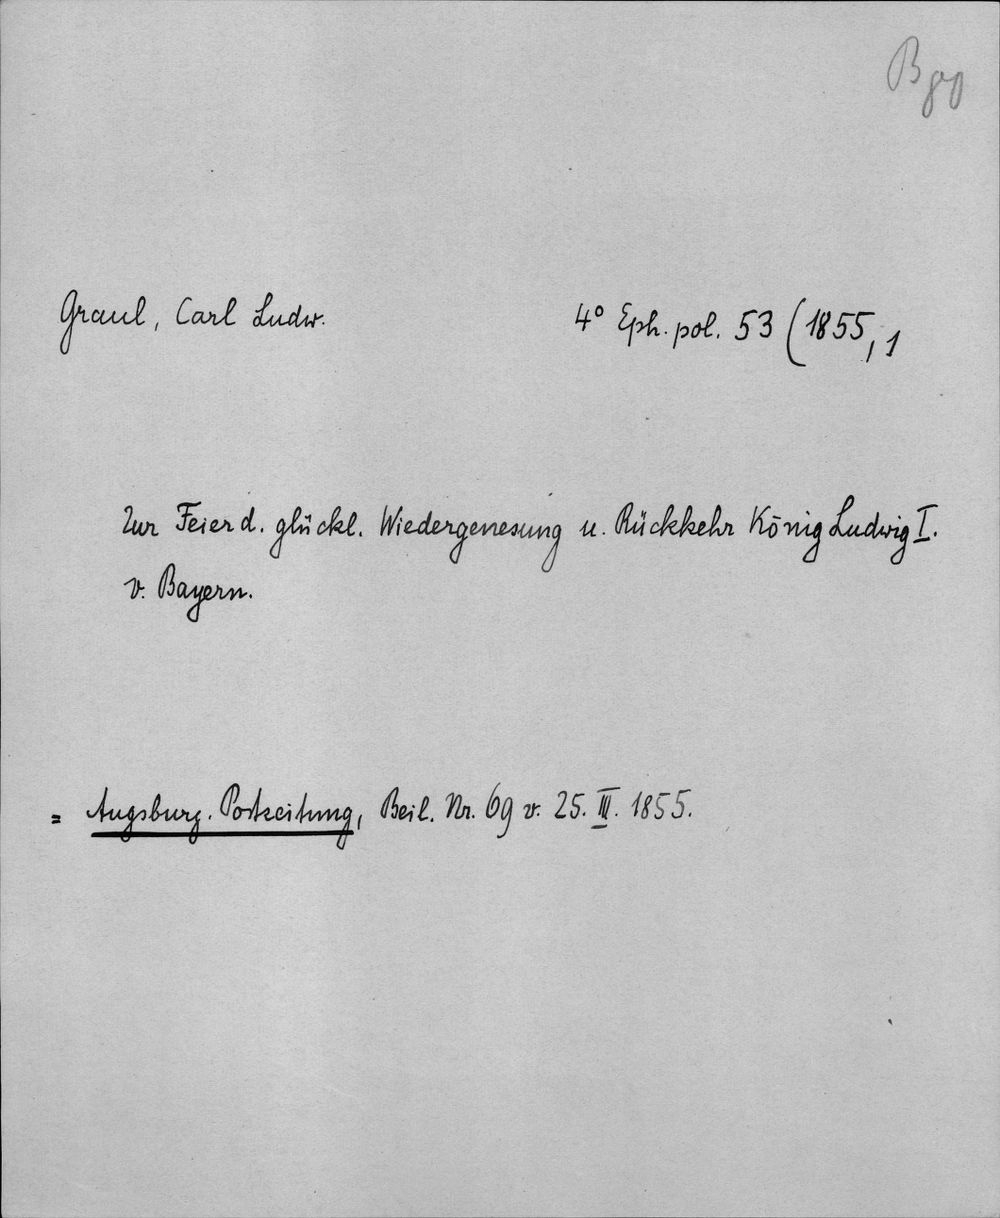 Graul, Carl Ludw. 4° Eph. pol. 53 (1855, 1
Zur Feier d. glückl. Wiedergenesung u. Rückkehr König Ludwig I.
v. Bayern.
= Augsburg. Postzeitung, Beil. Nr. 69 v. 25. III. 1855.